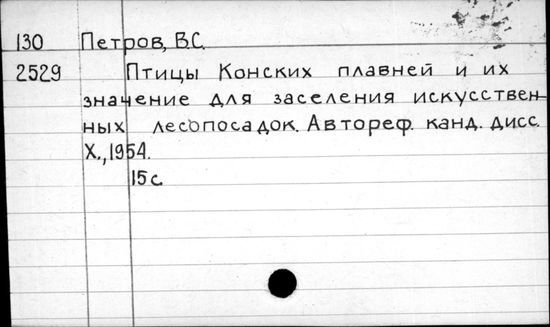 130 Петров, В.С.
2529 Птицы Конских плавней и их
значение для заселения искусствен-
ных лесопосадок. Автореф. канд. дисс.
Х., 1954.
15 с.